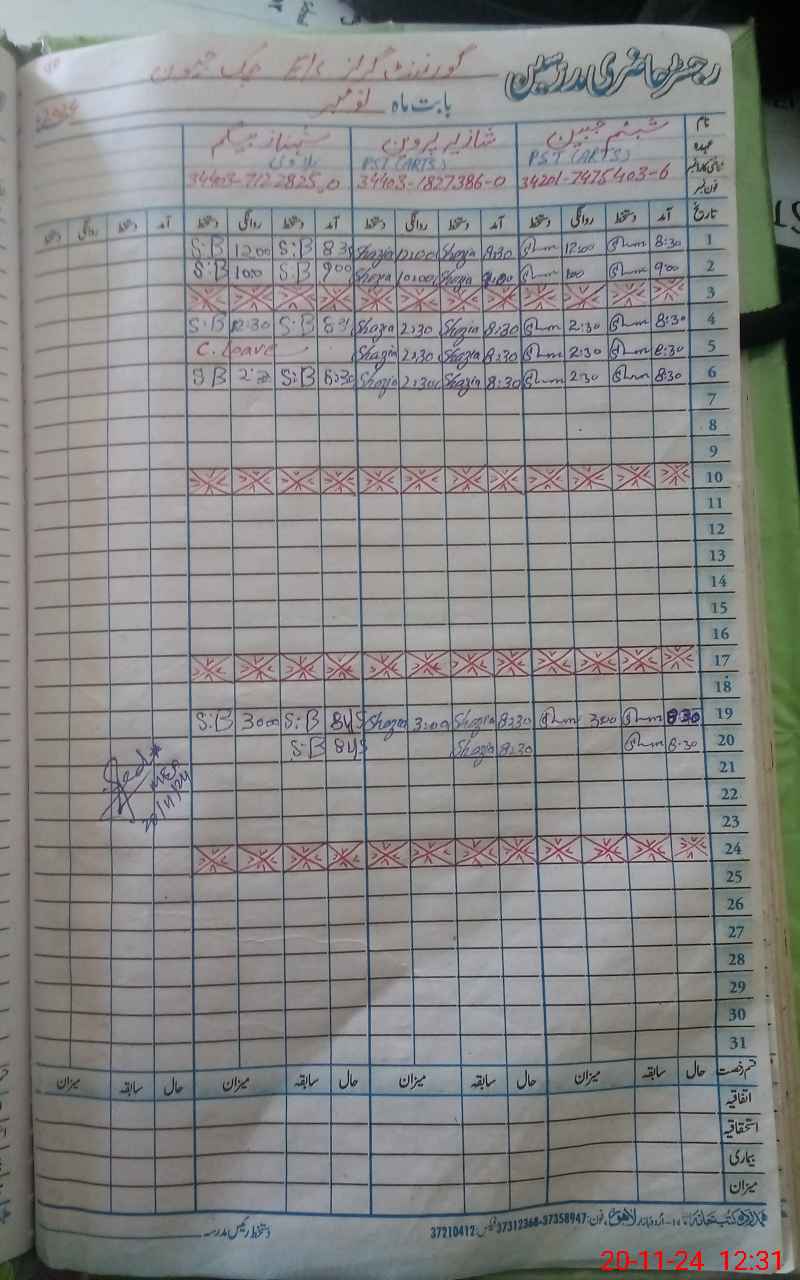 رجسٹر حاضری مدرسین گورنمنٹ گرلز E/S چک
بابت ماہ نومبر 2024
نام شبنم جبین شازیہ پروین شہناز بیگم
عہدہ PST (ARTS) PST (ARTS)
34201-7475403-6 34403-1827386-0 34403-7122825-0
فون نمبر
تاریخ آمد دستخط روانگی دستخط آمد دستخط روانگی دستخط آمد دستخط روانگی دستخط آمد دستخط روانگی دستخط
S.B 12.00 S.B 8:30 Shazia 12:00 Shazia 8:30 12:00 8:30 1
S.B 10.00 S.B 900 Shazia 10:00 Shazia 9:00 9:00 2
3
S.B 12:30 S.B 8:30 Shazia 2:30 Shazia 8:30 2:30 8:30 4
C. Leave Shazia 2:30 Shazia 8:30 2:30 8:30 5
S.B S.B 8:30 Shazia 2:30 Shazia 8:30 2:30 8:30 6
7
8
9
10
11
12
13
14
15
16
17
18
S.B 300 S.B 845 Shazia 3:00 Shazia 8:30 3:00 8:30 19
S.B 845 Shazia 8:30 8:30 20
20/11/24
21
22
23
24
25
26
27
28
29
30
31
قسم رخصت حال سابقہ میزان حال سابقہ میزان حال سابقہ میزان حال سابقہ میزان
اتفاقیہ
استحقاقیہ
بیماری
میزان
اردو بازار لاہور، فون: 37358947-37312368 فیکس: 37210412 دستخط رئیس مدرسہ
20-11-24 12:31